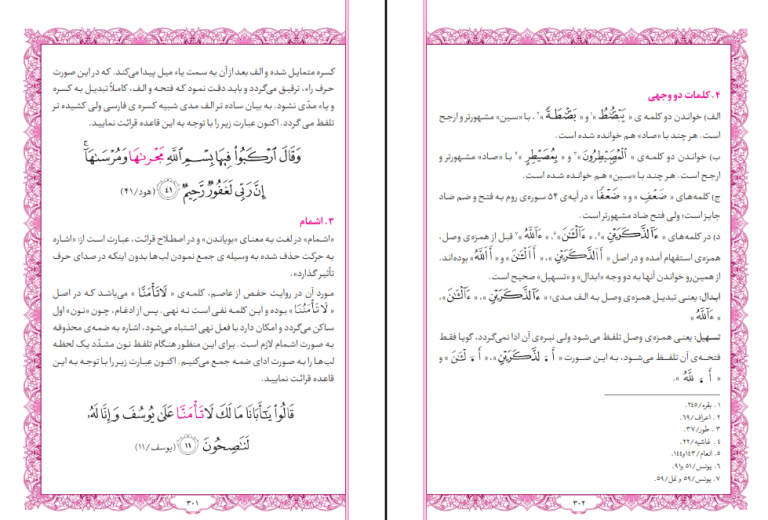 کسره متمایل شده و الف بعد از آن به سمت یاء میل پیدا می‌کند. که در این صورت
حرف راء، ترقیق می‌گردد و باید دقت نمود که فتحه و الف، کاملاً تبدیل به کسره
و یاء مدّی نشود. به بیان ساده تر الف مدی شبیه کسره ی فارسی ولی کشیده تر
تلفظ می گردد. اکنون عبارت زیر را با توجه به این قاعده قرائت نمایید.
وَقَالَ ٱرْكَبُوا۟ فِيهَا بِسْمِ ٱللَّهِ مَجْر۪ىٰهَا وَمُرْسَىٰهَآ ۚ
إِنَّ رَبِّى لَغَفُورٌ رَّحِيمٌ ﴿٤١﴾ (هود/۴۱)
۳. اشمام
«اشمام» در لغت به معنای «بویاندن» و در اصطلاح قرائت، عبارت است از: «اشاره
به حرکت حذف شده به وسیله ی جمع نمودن لب‌ها بدون اینکه در صدای حرف
تأثیر گذارد».
مورد آن در روایت حفص از عاصم، کلمه‌ی « لَا تَأْمَنَّا » می‌باشد که در اصل
« لَا تَأْمَنُنَا » بوده و این کلمه نفی است نه نهی. پس از ادغام، چون «نون» اول
ساکن می‌گردد و امکان دارد با فعل نهی اشتباه می‌شود، اشاره به ضمه‌ی محذوفه
به صورت اشمام لازم است. برای این منظور هنگام تلفظ نون مشدّد یک لحظه
لب‌ها را به صورت ادای ضمه جمع می‌کنیم. اکنون عبارت زیر را با توجه به این
قاعده قرائت نمایید.
قَالُوا۟ يَـٰٓأَبَانَا مَا لَكَ لَا تَأْمَ۫نَّا عَلَىٰ يُوسُفَ وَإِنَّا لَهُۥ
لَنَـٰصِحُونَ ﴿١١﴾ (یوسف/۱۱)
۳۰۱
۴. کلمات دو وجهی
الف) خواندن دو کلمه ی « يَبْصُۜطُ »۱ و « بَصْۜطَةً »۲، با «سین» مشهورتر و ارجح
است. هر چند با «صاد» هم خوانده شده است.
ب) خواندن دو کلمه‌ی « الْمُصَۣيْطِرُونَ »۳ و « بِمُصَيْطِرٍ »۴ با «صاد» مشهورتر و
ارجح است. هر چند با «سین» هم خوانده شده است.
ج) کلمه‌های « ضَعْفٍ » و « ضَعْفًا » در آیه‌ی ۵۴ سوره‌ی روم به فتح و ضم ضاد
جایز است؛ ولی فتح ضاد مشهورتر است.
د) در کلمه‌های « ءَآلذَّكَرَيْنِ »۵، « ءَآلْـَٔـٰنَ »۶، « ءَآللَّهُ »۷ قبل از همزه‌ی وصل،
همزه‌ی استفهام آمده و در اصل « أَاَلذَّكَرَيْنِ »، « أَاَلْـَٔـٰنَ » و « أَاَللَّهُ » بوده‌اند.
از همین‌رو خواندن آنها به دو وجه «ابدال» و «تسهیل» صحیح است.
ابدال: یعنی تبدیل همزه‌ی وصل به الف مدی؛ « ءَآلذَّكَرَيْنِ »، « ءَآلْـَٔـٰنَ »،
« ءَآللَّهُ »
تسهیل: یعنی همزه‌ی وصل تلفظ می‌شود ولی نبره‌ی آن ادا نمی‌گردد، گویا فقط
فتحه‌ی آن تلفظ می‌شود، به این صورت « أَ ـَ لذَّكَرَيْنِ »، « أَ ـَ لْـَٔـٰنَ » و
« أَ ـَ للَّهُ ».
۱. بقره/۲۴۵.
۲. اعراف/۶۹.
۳. طور/۳۷.
۴. غاشیه/۲۲.
۵. انعام/۱۴۳و۱۴۴.
۶. یونس/۵۱ و۹۱.
۷. یونس/۵۹ و نمل/۵۹.
۳۰۲